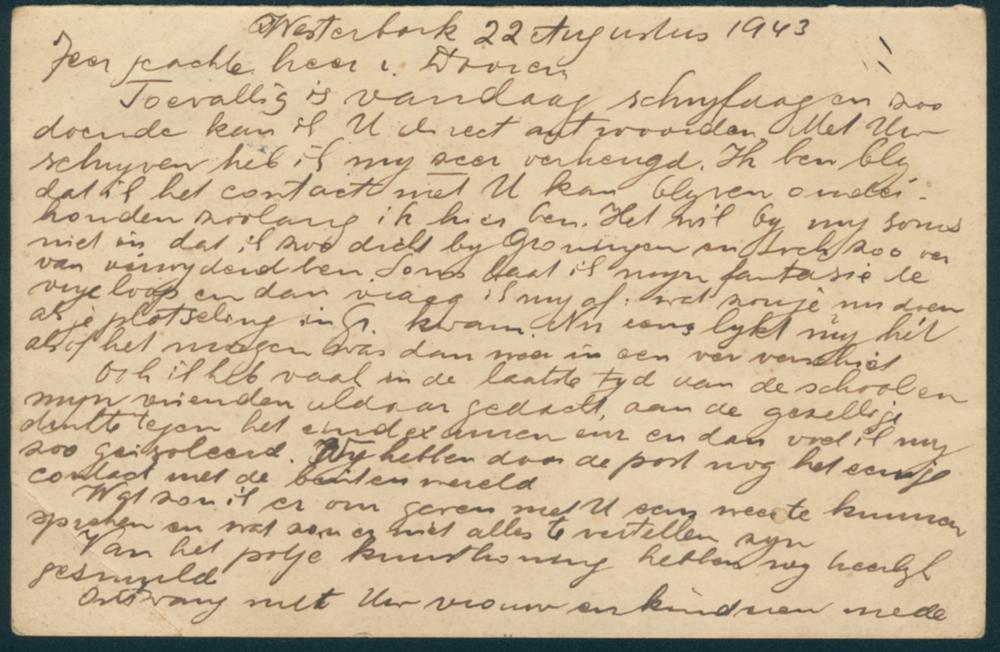 Westerbork 22 Augustus 1943
Zeer geachte heer v. Dooren
Toevallig is vandaag schryfdag en zoo
doende kan ik U direct antwoorden. Met Uw
schryven heb ik my zeer verheugd. Ik ben bly
dat ik het contact met U kan blyven onder-
houden zoolang ik hier ben. Het wil by my soms
niet in dat ik zoo dicht by Groningen en toch zoo ver
van verwyderd ben. Soms laat ik myn fantasie de
vrye loop en dan vraag ik my af: wat zou je nu doen
als je plotseling in G. kwam. Nu eens lykt my het
alsof het morgen was dan weer in een ver verschiet
Ook ik heb vaak in de laatste tyd van de school en
myn vrienden aldaar gedacht, aan de gezellige
drukte tegen het eindexamen enz en dan voel ik my
zoo geisoleerd. Wy hebben door de post nog het eenige
contact met de buitenwereld
Wat zou ik er om geven met U eens weer te kunnen
spreken en wat zou er niet alles te vertellen zyn
Van het potje kunsthoning hebben wy heerlyk
gesmuld
Ontvang met Uw vrouw en kinderen mede